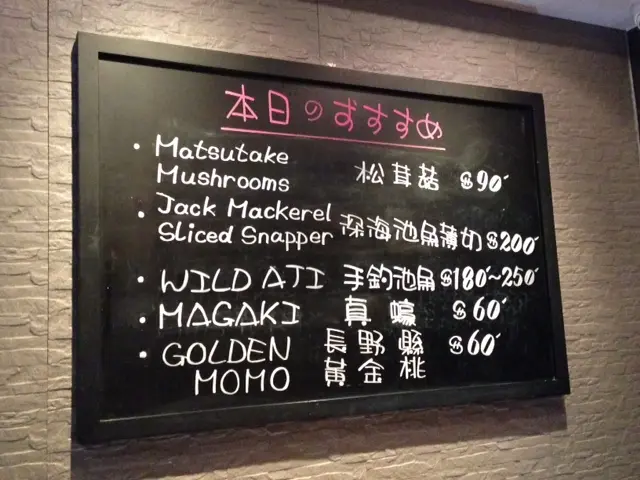 本日のおすすめ
• Matsutake
Mushrooms 松茸菇 $90
• Jack Mackerel
Sliced Snapper 深海池魚薄切 $200
• WILD AJI 手釣池魚 $180~250
• MAGAKI 真蠔 $60
• GOLDEN 長野縣 $60
MOMO 黃金桃